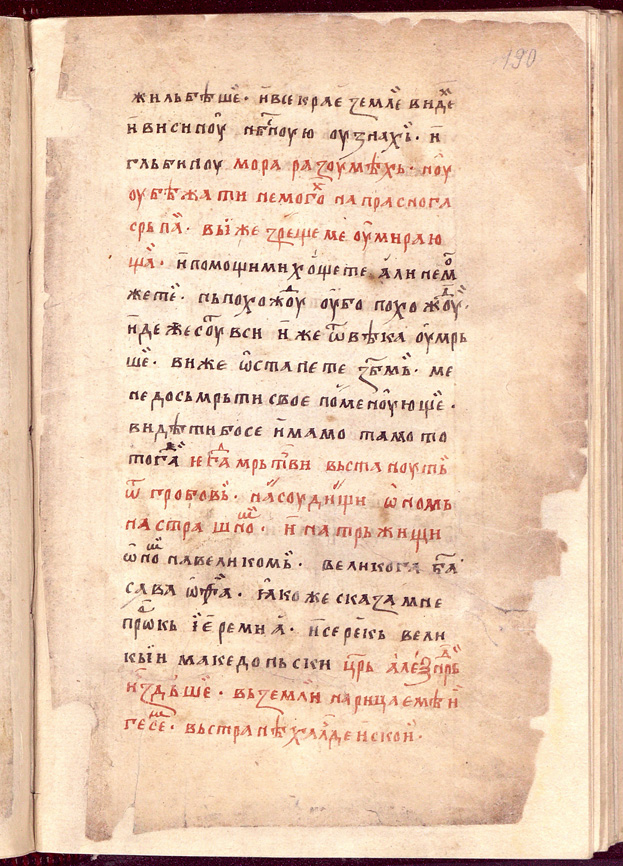 190
жильбѣше · и все краѥ землѥ видѣ
и висиноу нбⷭ҇ноую оузнахь · и
гльбиноу мора разоумѣхь · ноу
оубѣжати немогоⷯ напраснога
срьпа · вы же зреще ме оумираю
ща · и помощи ми хощете али немоⷤ
жете · нь похожоⷣу оубо похожоⷣу
идеже соуⷮ вси иже ѿ вѣка оумрь
ше · ви же ѡстанете збⷢ҇мь · ме
не до сьмрьти свое поменоующе ·
видѣти бо се имамо тамо то
тогⷣа ѥгⷣа мрьтви вьстаноуть
ѿ гробовь · на соудищи ѡномь
на страшноⷨ · и на трьжищи
ѡноⷨ на великомь · великога бⷢ҇а
сава ѡѳⷴа · ꙗкоже сказа мне
прⷪ҇ркь ıеремиꙗ · и се рекь вели
кыи македоньски црь алеѯⷣнрь
издьше · вь земли нарицаемѣи
гесеⷨ · вь странѣ халдеискои ·